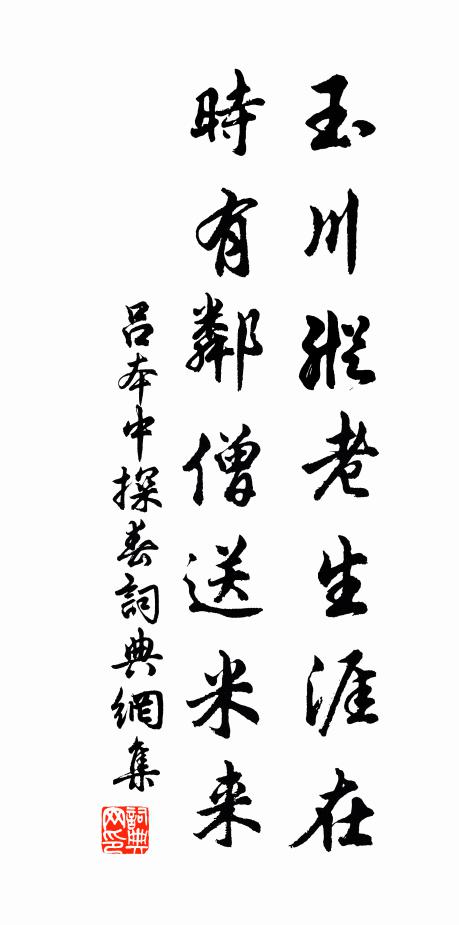 玉川縱老生涯在
時有鄰僧送米来
呂本中探春詞典網集
詞典網印